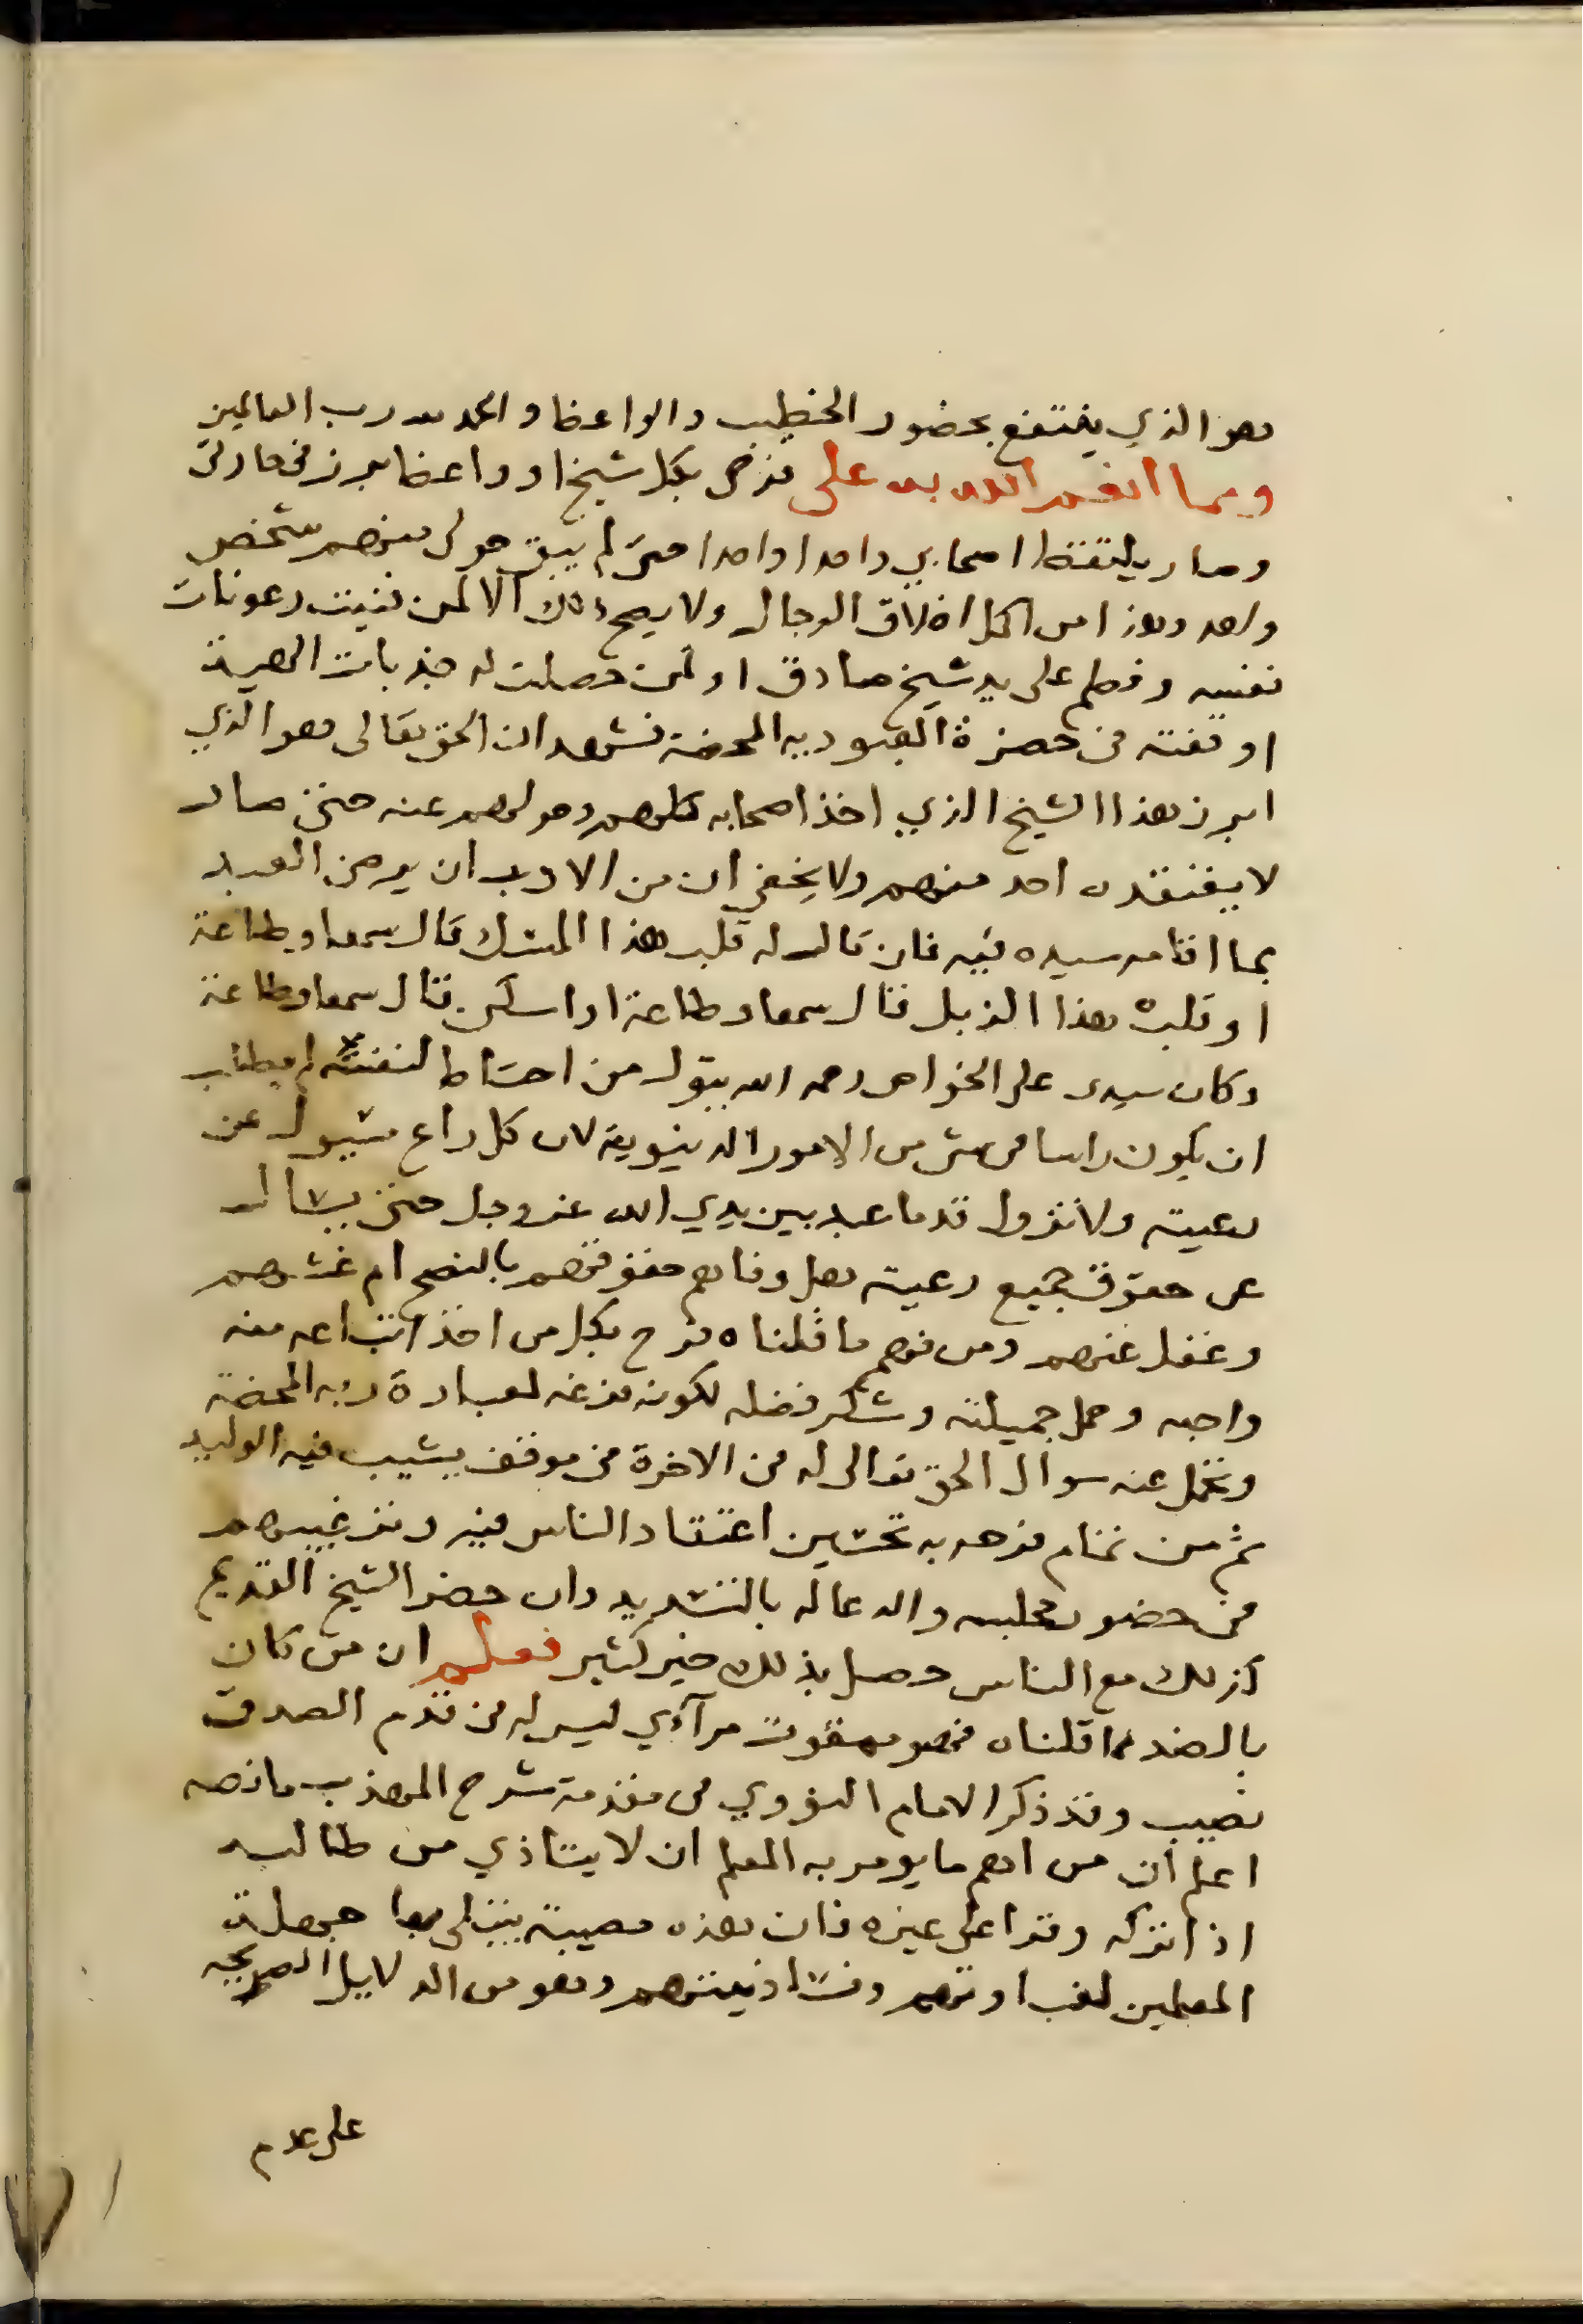 وهو الذي ينتفع بحضور الخطيب والواعظ والحمد لله رب العالمين
ومما انعم الله به على فرحى بكل شيخ او واعظ برز في حارتي
وصار يلتقط اصحابي واحدا واحدا حتى لم يبق حولى منهم شخص
واحد وهذا من اكمل اخلاق الرجال ولا يصح ذلك الا لمن فنيت رعونات
نفسه وفطم على يد شيخ صادق او لمن حصلت له جذبات الهية
اوقفته في حضرة العبودية المحضة فشهد ان الحق تعالى هو الذي
ابرز هذا الشيخ الذي اخذ اصحابه كلهم وحولهم عنه حتى صار
لا يفتقده احد منهم ولا يخفى ان من الادب ان يرضى العبد
بما اقامه سيده فيه فان قال له قلب هذا المسك قال سمعا وطاعة
او قلب هذا الزبل قال سمعا وطاعة او اسكن قال سمعا وطاعة
وكان سيدى على الخواص رحمه الله يقول من احتاط لنفسه لم يطلب
ان يكون راسا في شى من الامور الدنيوية لان كل راع مسئول عن
رعيته ولا تزول قدما عبد بين يدي الله عز وجل حتى يسال
عن حقوق جميع رعيته هل وفاهم حقوقهم بالنصح ام غشهم
وغفل عنهم ومن فهم ما قلناه فرح بكل من اخذ اتباعه منه
واحبه وحمل جميلته وشكر فضله لكونه فرغه لعبادة ربه المحضة
وتحمل عنه سوال الحق تعالى له في الاخرة في موقف يشيب فيه الوليد
ثم من تمام فرحه به تحسين اعتقاد الناس فيه وترغيبهم
في حضور مجلسه والدعا له بالتسديد وان حضر الشيخ القديم
كذلك مع الناس حصل بذلك خير كثير فعلم ان من كان
بالضد مما قلناه فهو ممقوت مرآئي ليس له في قدم الصدق
نصيب وقد ذكر الامام النووي في مقدمة شرح المهذب ما نصه
اعلم أن من اهم ما يومر به المعلم ان لا يتاذي من طالبه
اذا تركه وقرا على غيره فان هذه مصيبة يبتلى بها جهلة
المعلمين لغباوتهم وفساد نيتهم وهو من الدلايل الصريحه
على عدم